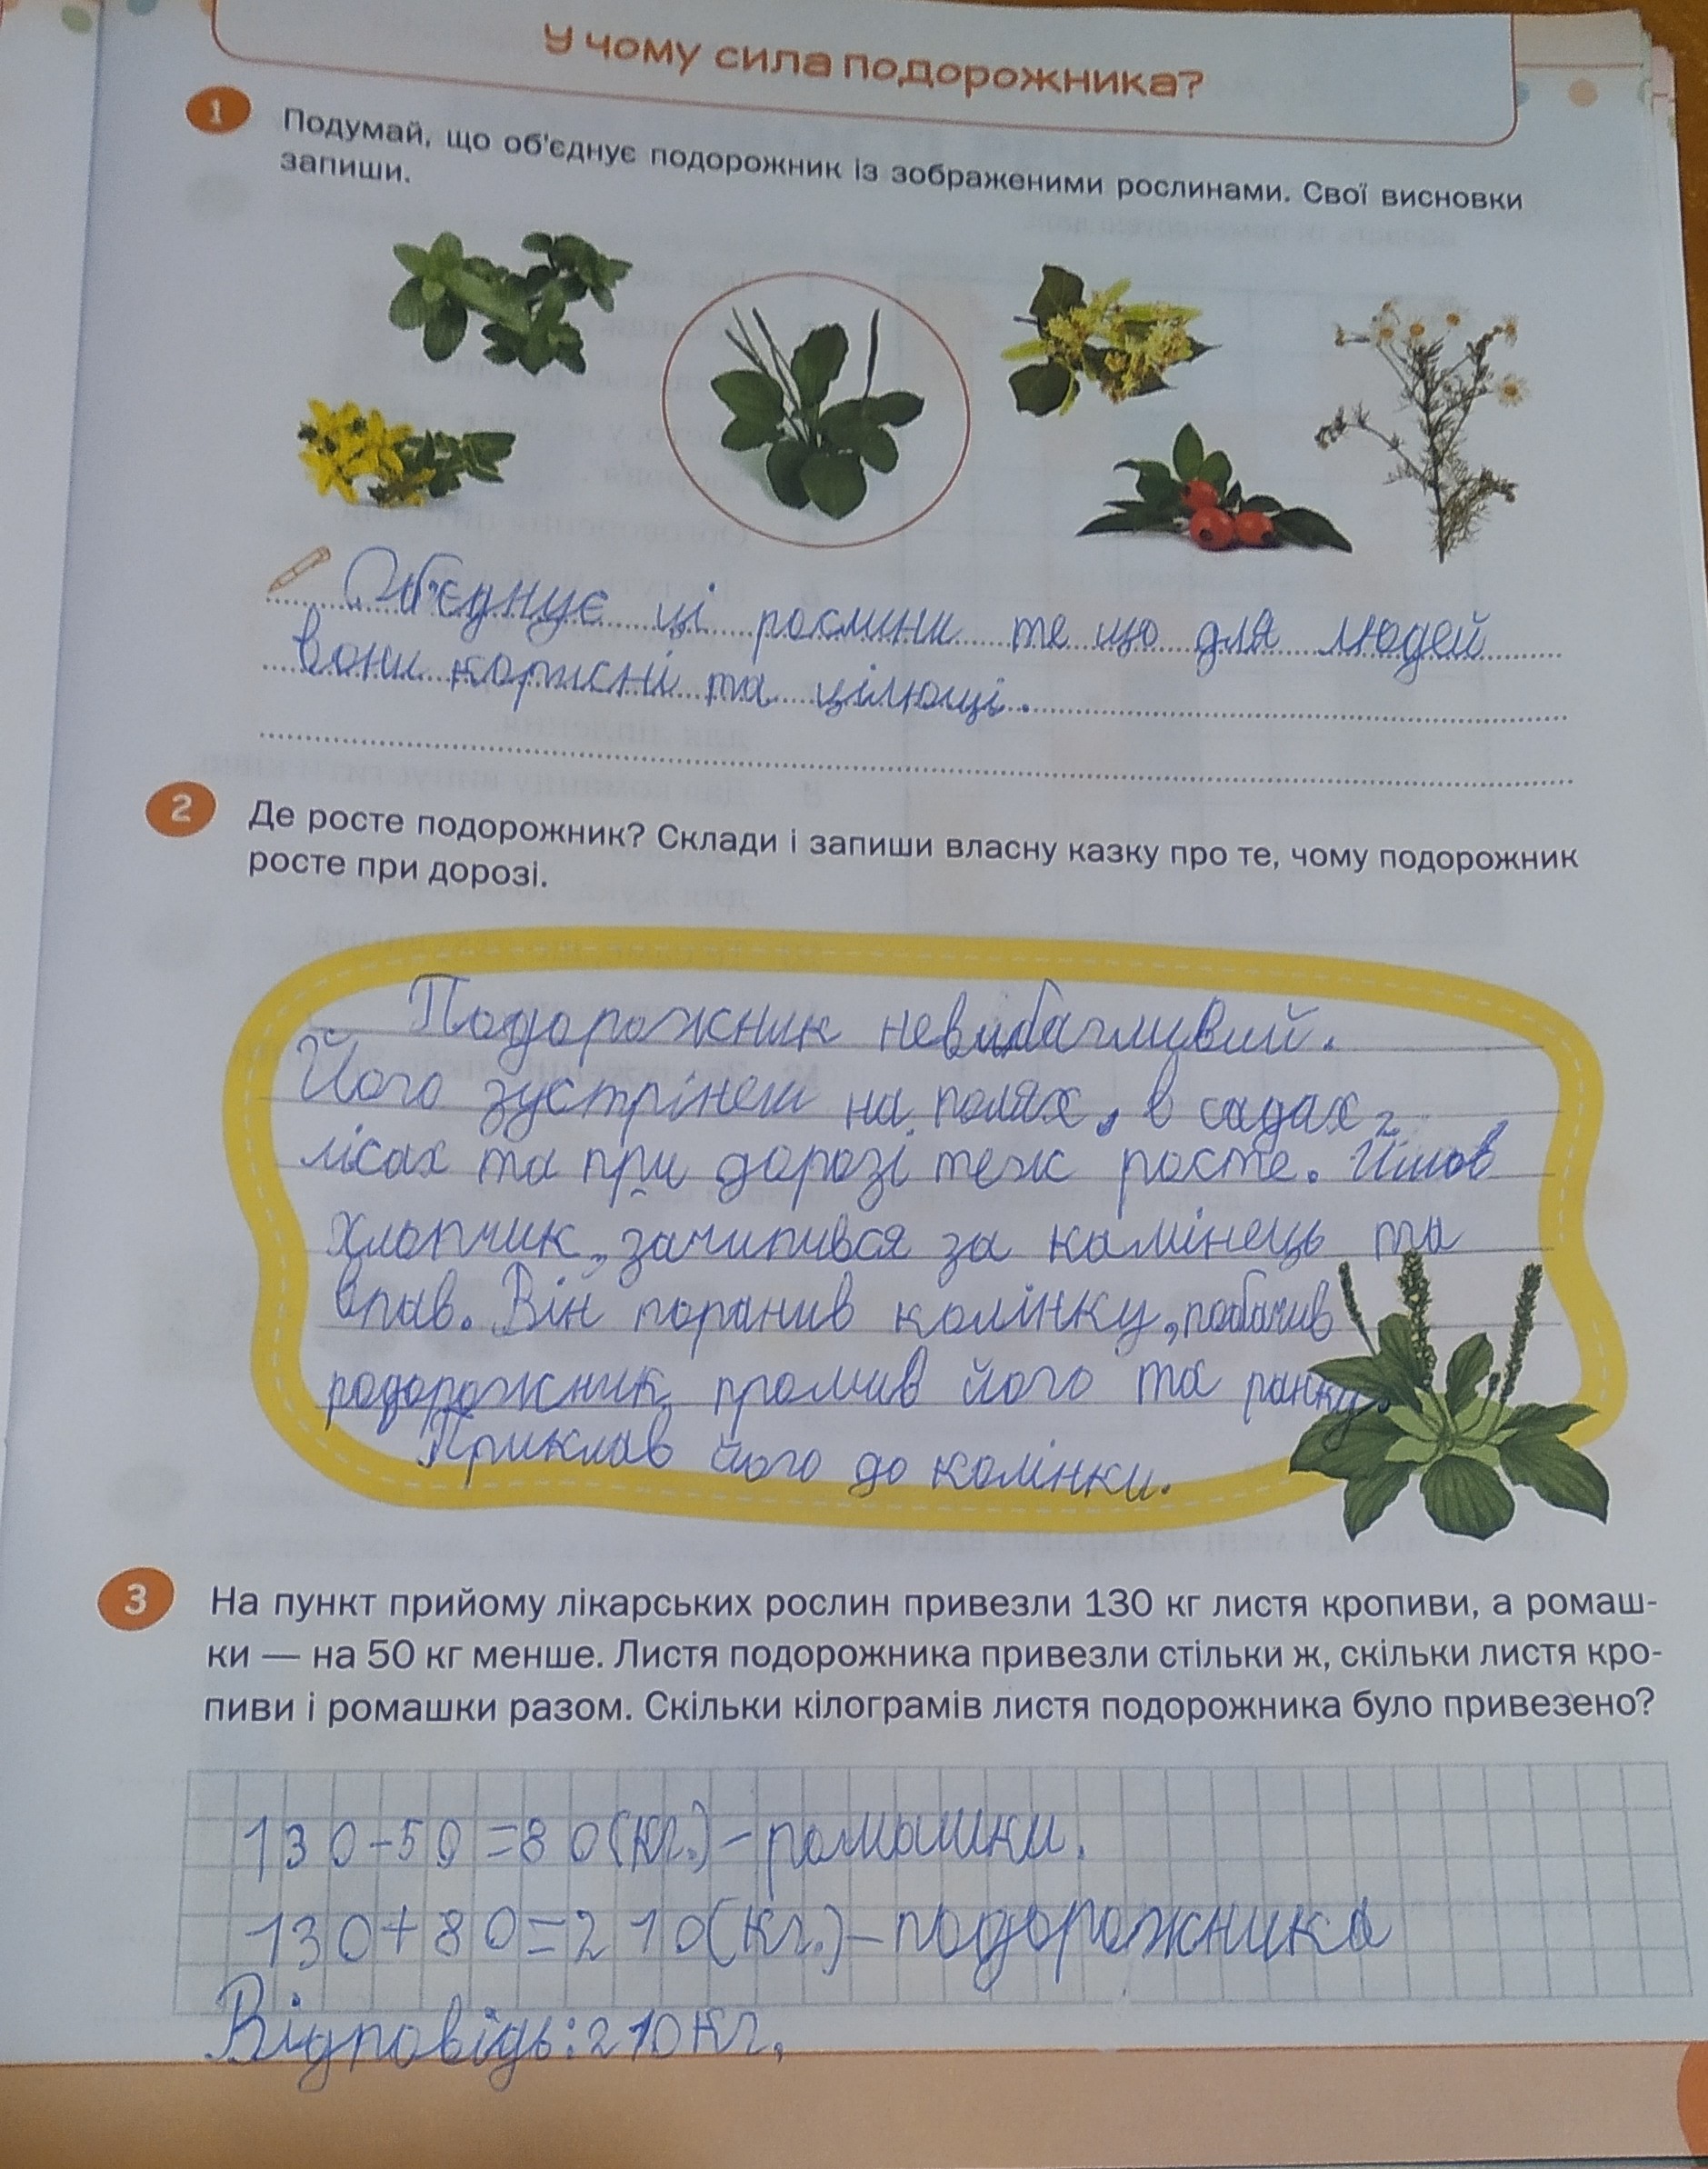 У чому сила подорожника?
1
Подумай, що об'єднує подорожник із зображеними рослинами. Свої висновки
запиши.
Об'єднує ці рослини те що для людей
вони корисні та цілющі.
2
Де росте подорожник? Склади і запиши власну казку про те, чому подорожник
росте при дорозі.
Подорожник невибагливий.
Його зустрінеш на полях, в садах,
лісах та при дорозі теж росте. Йшов
хлопчик, зачипився за камінець та
впав. Він поранив колінку, побачив
подорожник, промив його та ранку.
Приклав його до колінки.
3
На пункт прийому лікарських рослин привезли 130 кг листя кропиви, а ромаш-
ки — на 50 кг менше. Листя подорожника привезли стільки ж, скільки листя кро-
пиви і ромашки разом. Скільки кілограмів листя подорожника було привезено?
130-50=80(кг.)-ромашки.
130+80=210(кг.)-подорожника
Відповідь:210кг.